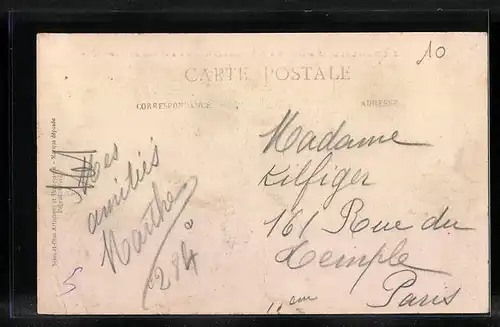 10
CARTE POSTALE
CORRESPONDANCE
ADRESSE
Mes
amitiés
Marthe
284
5
Madame
Kilfiger
161 Rue du
Temple
11eme Paris